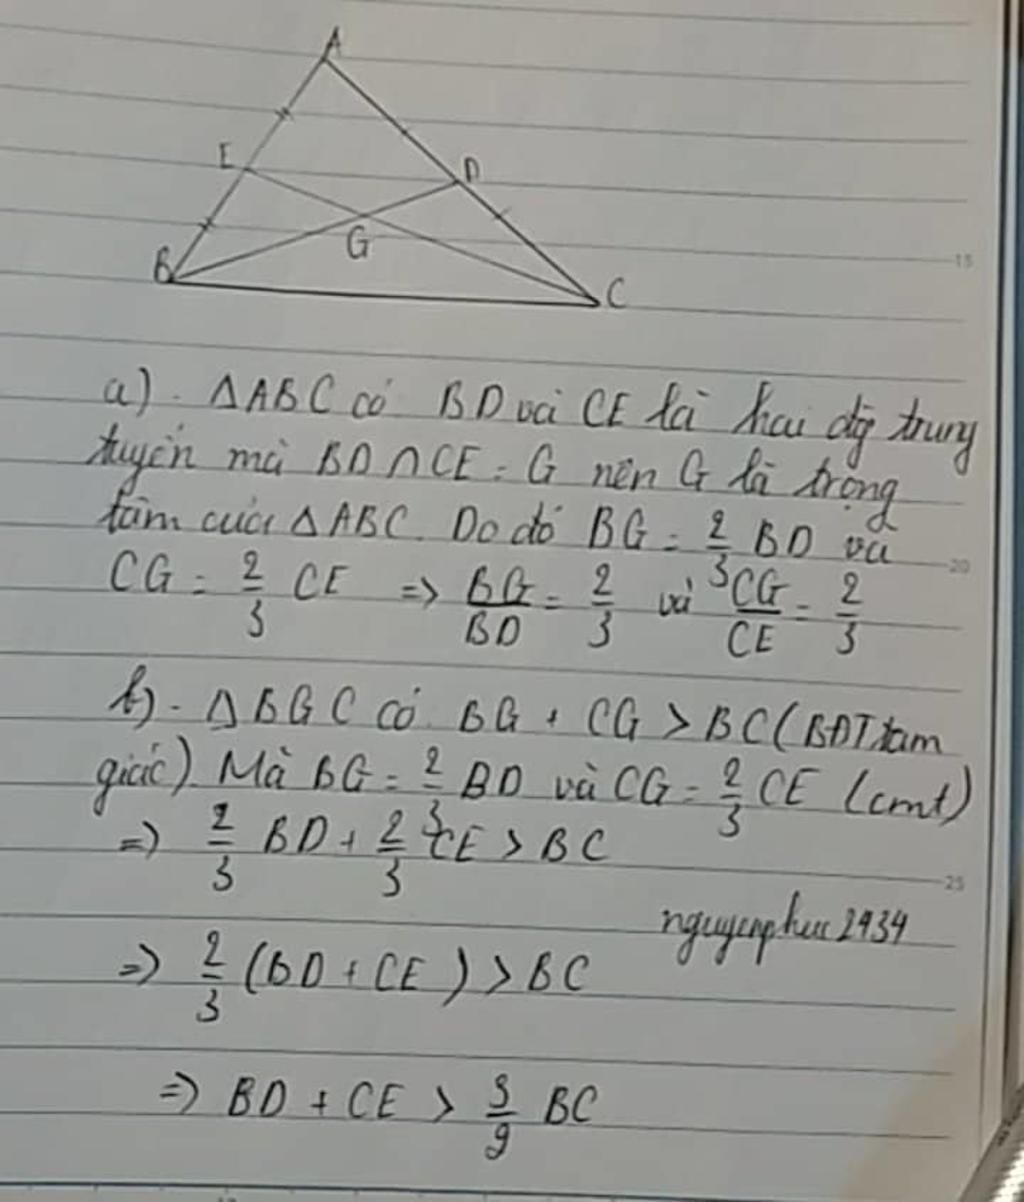 A
E
D
G
B
C
15
a). ΔABC có BD và CE là hai đg trung
tuyến mà BD∩CE = G nên G là trọng
tâm của ΔABC. Do đó BG = 2/3 BD và
20
CG = 2/3 CE => BG/BD = 2/3 và CG/CE = 2/3
b). ΔBGC có BG + CG > BC (BĐT tam
giác) Mà BG = 2/3 BD và CG = 2/3 CE (cmt)
=> 2/3 BD + 2/3 CE > BC
25
nguyenphuc2934
=> 2/3 (BD + CE) > BC
=> BD + CE > 3/2 BC